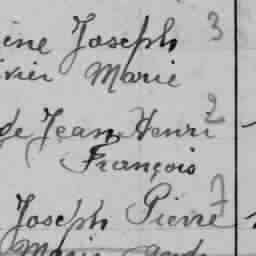 ine Joseph 3
vier Marie
de Jean Henri 2
François
Joseph Pierre 7
Marie